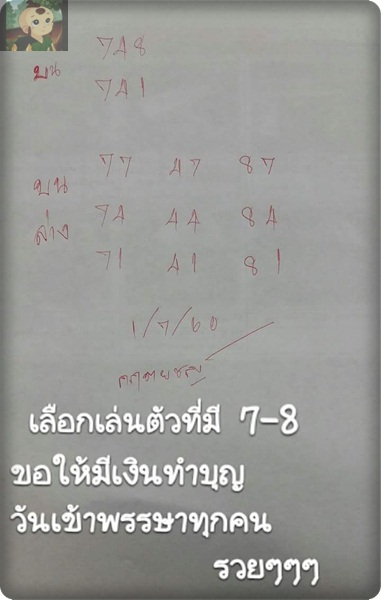 748
บน
741
77 47 87
บน
74 44 84
ล่าง
71 41 81
1/7/60
เลือกเล่นตัวที่มี 7-8
ขอให้มีเงินทำบุญ
วันเข้าพรรษาทุกคน
รวยๆๆๆ